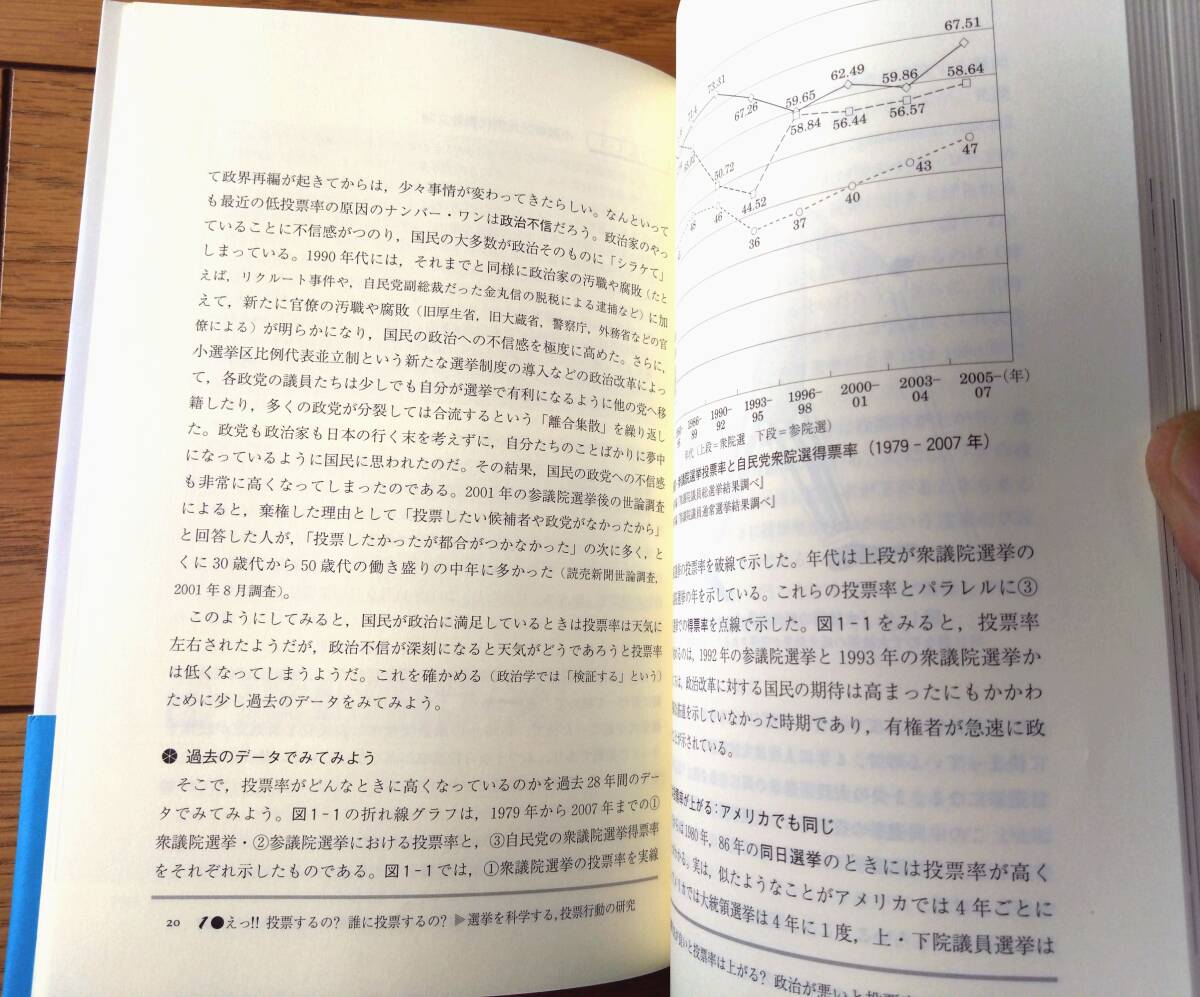 て政界再編が起きてからは，少々事情が変わってきたらしい。なんといって
も最近の低投票率の原因のナンバー・ワンは政治不信だろう。政治家のやっ
ていることに不信感がつのり，国民の大多数が政治そのものに「シラケて」
しまっている。1990年代には，それまでと同様に政治家の汚職や腐敗（たと
えば，リクルート事件や，自民党副総裁だった金丸信の脱税による逮捕など）に加
えて，新たに官僚の汚職や腐敗（旧厚生省，旧大蔵省，警察庁，外務省などの官
僚による）が明らかになり，国民の政治への不信感を極度に高めた。さらに，
小選挙区比例代表並立制という新たな選挙制度の導入などの政治改革によっ
て，各政党の議員たちは少しでも自分が選挙で有利になるように他の党へ移
籍したり，多くの政党が分裂しては合流するという「離合集散」を繰り返し
た。政党も政治家も日本の行く末を考えずに，自分たちのことばかりに夢中
になっているように国民に思われたのだ。その結果，国民の政党への不信感
も非常に高くなってしまったのである。2001年の参議院選挙後の世論調査
によると，棄権した理由として「投票したい候補者や政党がなかったから」
と回答した人が，「投票したかったが都合がつかなかった」の次に多く，と
くに30歳代から50歳代の働き盛りの中年に多かった（読売新聞世論調査，
2001年8月調査）。
このようにしてみると，国民が政治に満足しているときは投票率は天気に
左右されたようだが，政治不信が深刻になると天気がどうであろうと投票率
は低くなってしまうようだ。これを確かめる（政治学では「検証する」という）
ために少し過去のデータをみてみよう。
過去のデータでみてみよう
そこで，投票率がどんなときに高くなっているのかを過去28年間のデー
タでみてみよう。図1-1の折れ線グラフは，1979年から2007年までの①
衆議院選挙・②参議院選挙における投票率と，③自民党の衆議院選挙得票率
をそれぞれ示したものである。図1-1では，①衆議院選挙の投票率を実線
20 1●えっ!! 投票するの？ 誰に投票するの？ ▶選挙を科学する，投票行動の研究
67.51
73.31
71.4
67.26
59.65
62.49
59.86
58.64
58.84
56.44
56.57
50.72
44.52
48
46
36
37
40
43
47
1990-92
1993-95
1996-98
2000-01
2003-04
2005-07
(年)
年代（上段＝衆院選 下段＝参院選）
議院選挙投票率と自民党衆院選得票率（1979-2007年）
議院議員総選挙結果調べ』
議院議員通常選挙結果調べ』
の投票率を破線で示した。年代は上段が衆議院選挙の
選挙の年を示している。これらの投票率とパラレルに③
での得票率を点線で示した。図1-1をみると，投票率
のは，1992年の参議院選挙と1993年の衆議院選挙か
は，政治改革に対する国民の期待は高まったにもかかわ
を示していなかった時期であり，有権者が急速に政
が示されている。
率が上がる：アメリカでも同じ
は1980年，86年の同日選挙のときには投票率が高く
かる。実は，似たようなことがアメリカでは4年ごとに
メリカでは大統領選挙は4年に1度，上・下院議員選挙は
が良いと投票率は上がる？ 政治が悪いと投票率